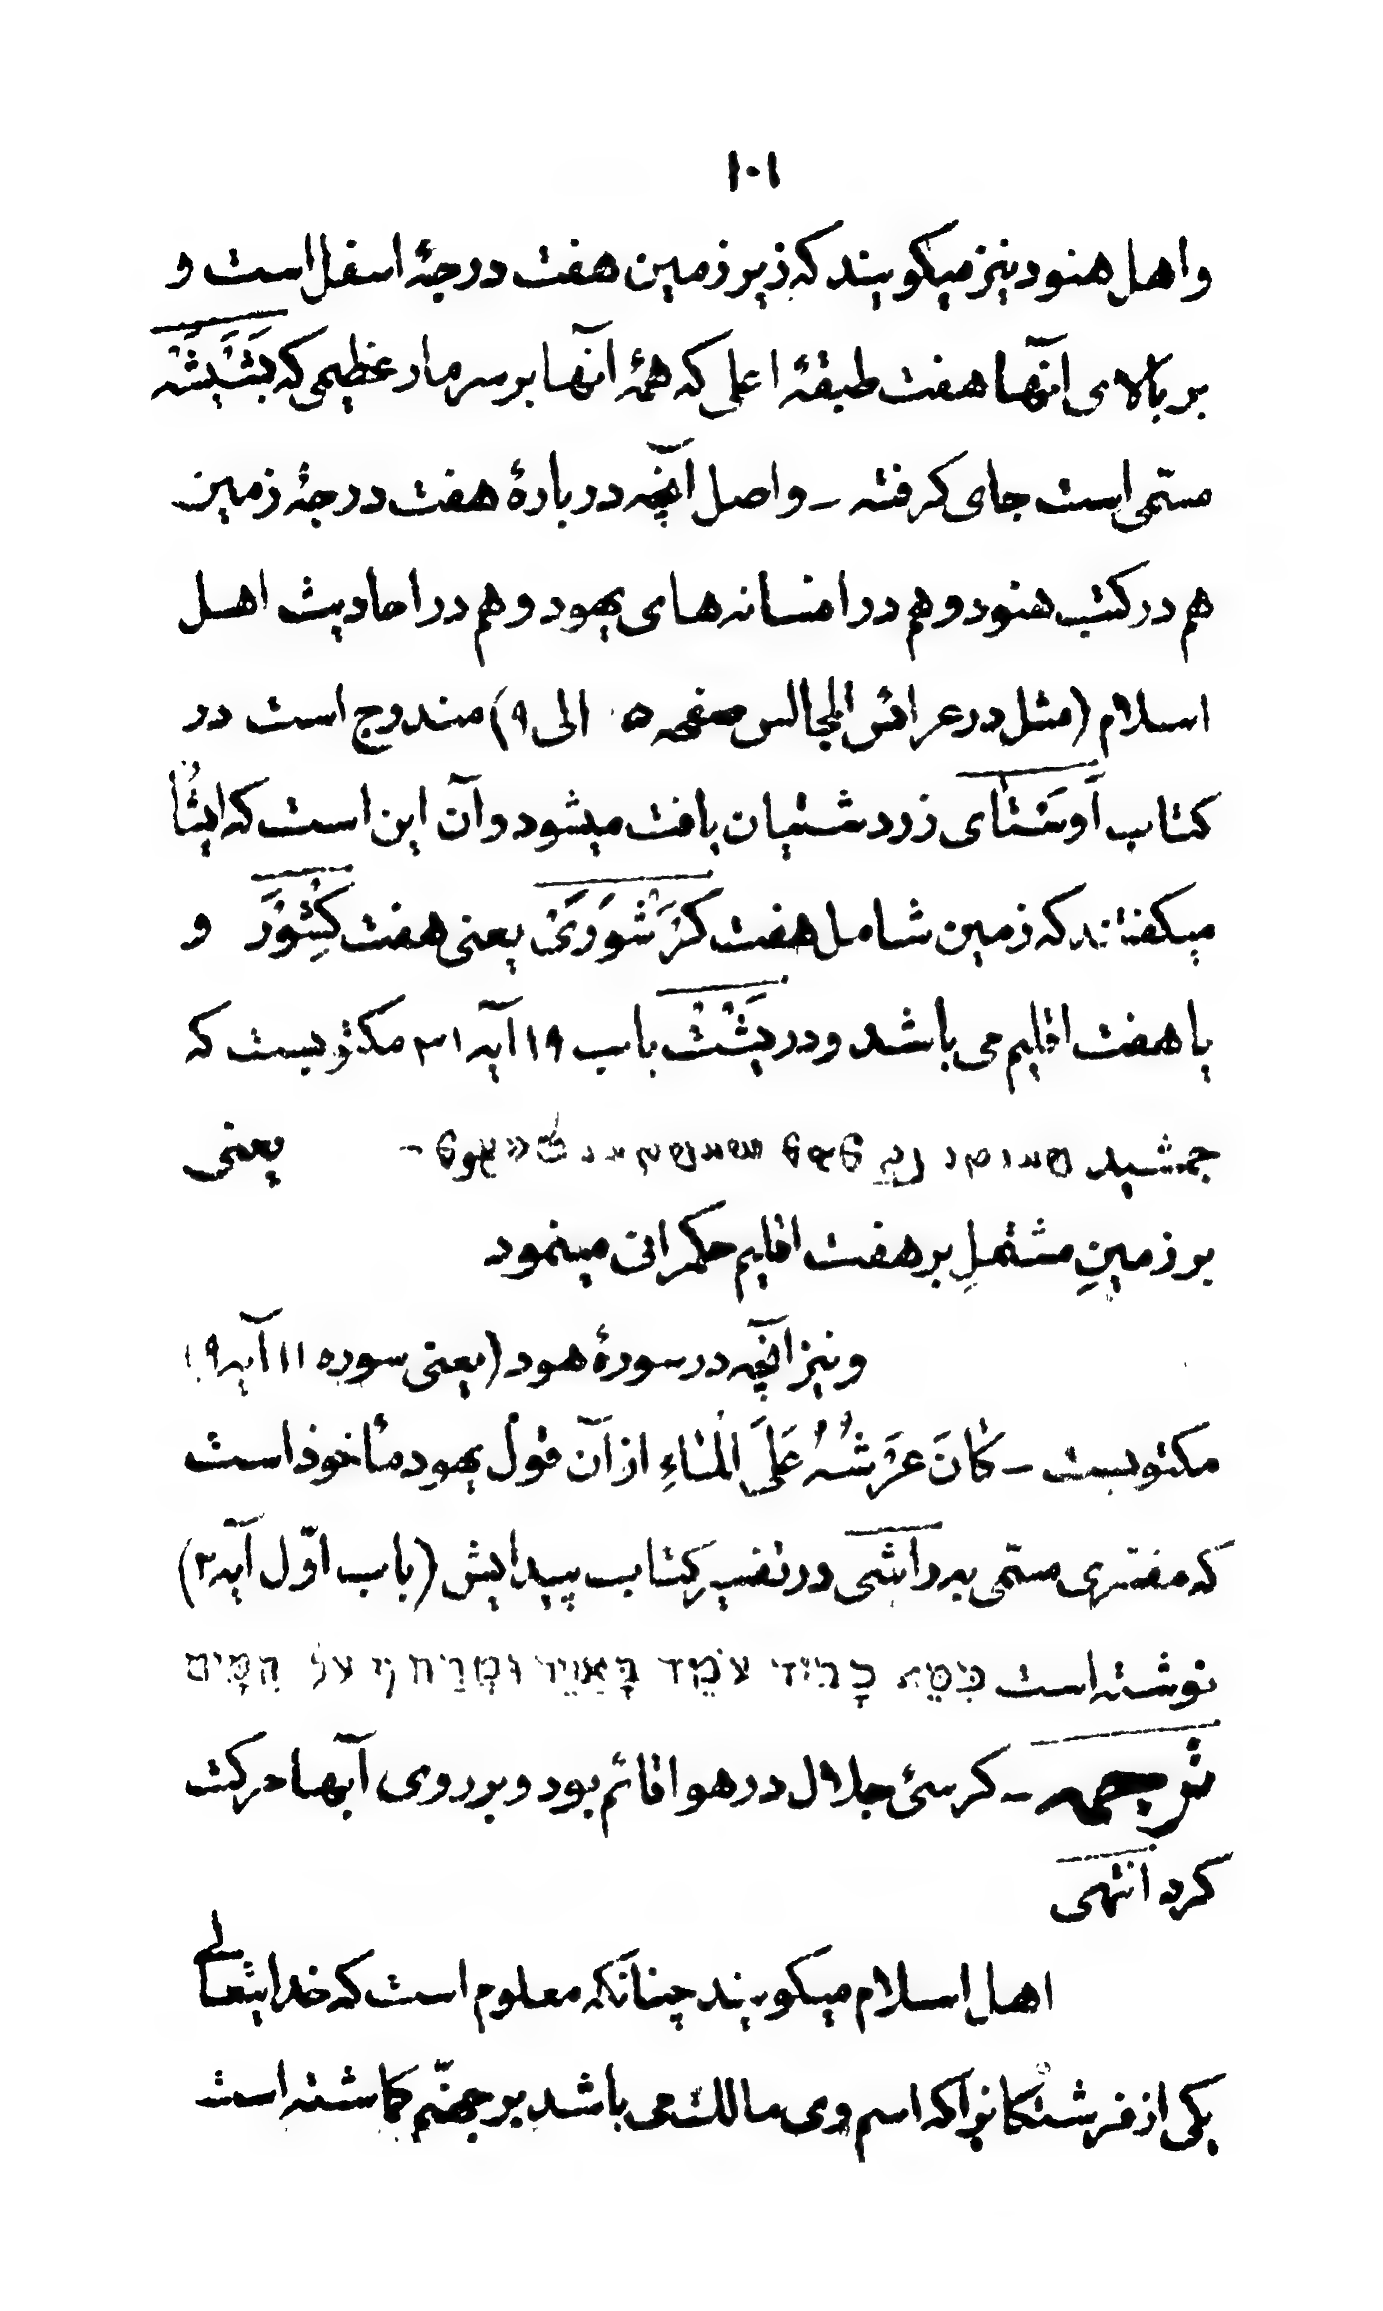 ۱۰۱
و اهل هنود نیز میکویند که زیر زمین هفت درجهٔ اسفل است و
بر بالای آنها هفت طبقهٔ اعلی که همهٔ آنها بر سر مار عظیمی که
مسمّی است جای کرفته ــ و اصل آنچه در بارهٔ هفت درجهٔ زمین
هم در کتب هنود و هم در افسانه های یهود و هم در احادیث اهل
اسلام (مثل در عرائس المجالس صفحه ۵ الی ۹) مندرج است در
کتاب اَوِسْتَای زردشتیان یافت میشود و آن این است که ایشان
میکفتند که زمین شامل هفت کَرْشْوَرَیْ یعنی هفت کِشْوَرْ و
یا هفت اقلیم می باشد و در یَشْتْ باب ۱۹ آیه ۳۱ مکتوبست که
جمشید یعنی
بر زمینِ مشتملِ بر هفت اقلیم حکمرانی مینمود
و نیز آنچه در سورهٔ هود (یعنی سوره ۱۱ آیه ۹)
مکتوبست ــ كَانَ عَرْشُهُ عَلَى الْمَاءِ از آن قول یهود مأخوذ است
که مفتری مسمّی به راشی در تفسیر کتاب پیدایش (باب اوّل آیه ۲)
نوشته است כִּסֵּא כָבוֹד עֹמֵד בָּאֲוִיר וּמְרַחֵף עַל הַמַּיִם
ترجمه ــ کرسئ جلال در هوا قائم بود و بر روی آبها حرکت
کرد انتهی
اهل اسلام میکویند چنانکه معلوم است که خدایتعالی
یکی از فرشتکانرا که اسم وی مالك می باشد بر جهنّم کماشته است